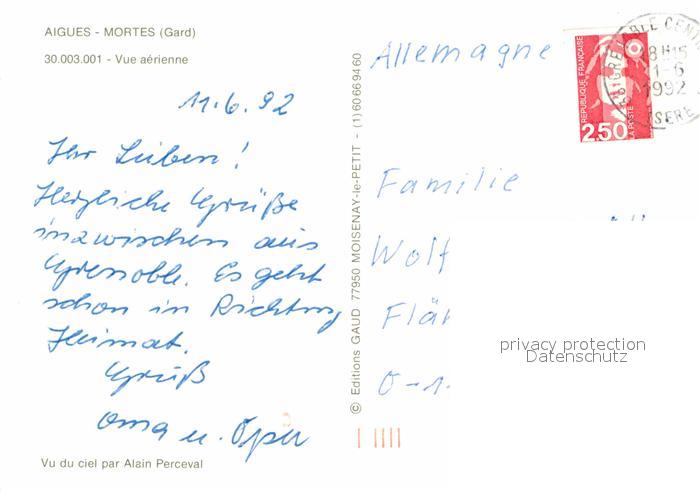 AIGUES - MORTES (Gard)
30.003.001 - Vue aérienne
11.6.92
Ihr Lieben!
Herzliche Grüße
inzwischen aus
Grenoble. Es geht
schon in Richtung
Heimat.
Gruß
Oma u. Opa
Vu du ciel par Alain Perceval
© Editions GAUD 77950 MOISENAY-le-PETIT - (1) 60669460
Allemagne
REPUBLIQUE FRANÇAISE
2,50
LA POSTE
GRENOBLE
11-6
1992
ISERE
Familie
Wolf
O-1
privacy protection
Datenschutz